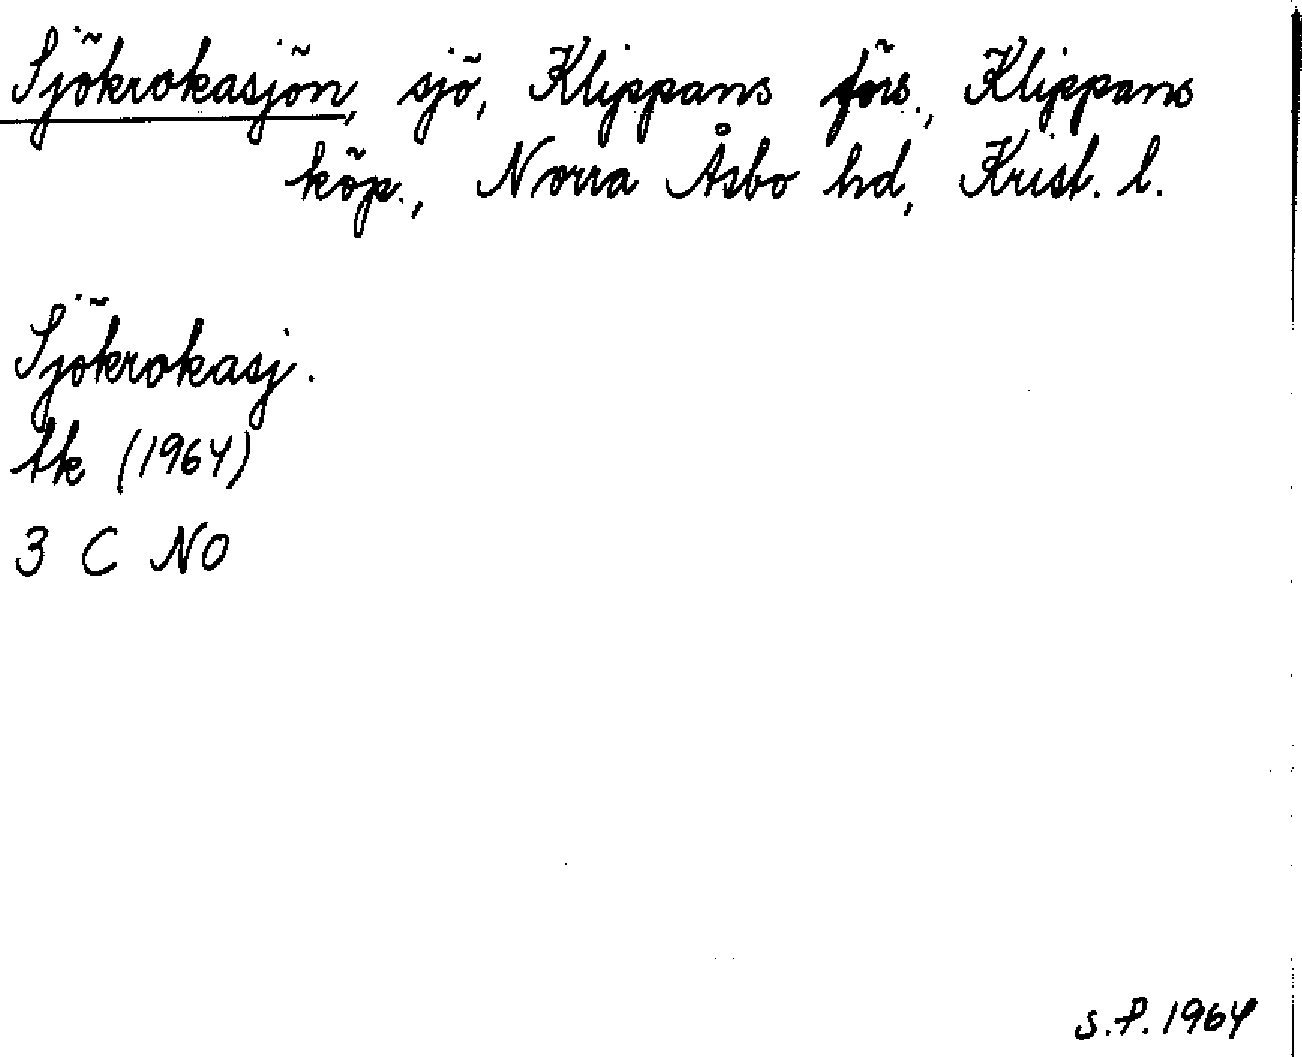 Sjökrokasjön, sjö, Klippans förs., Klippans
köp., Norra Åsbo hd, Krist. l.
Sjökrokasj.
tk (1964)
3 C NO
S.P. 1964